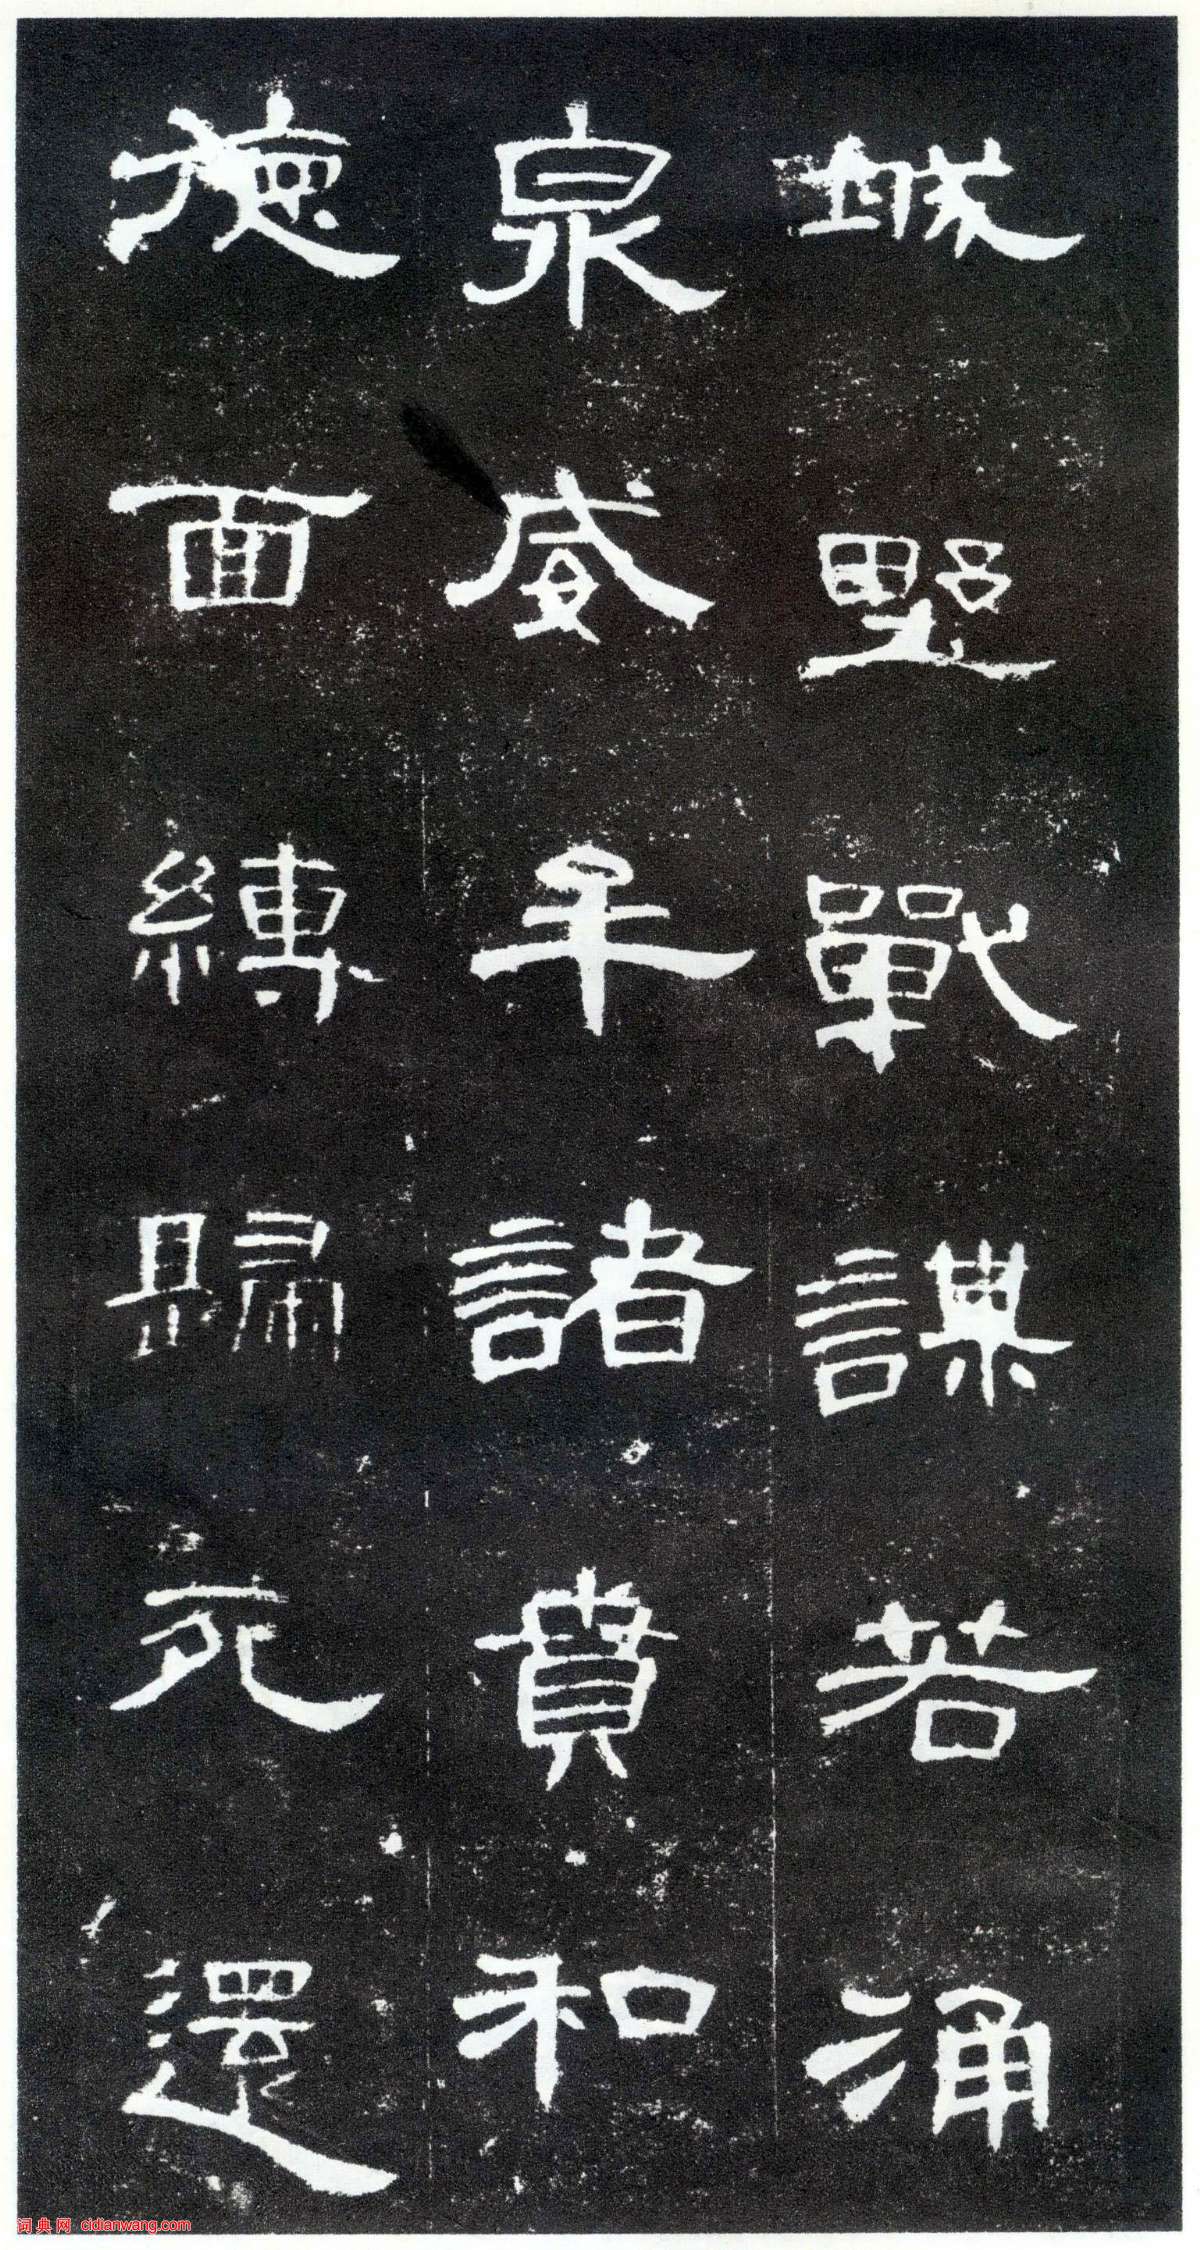 城野戰謀若涌
泉威牟諸賁和
德面縛歸死還
词典网 cidianwang.com